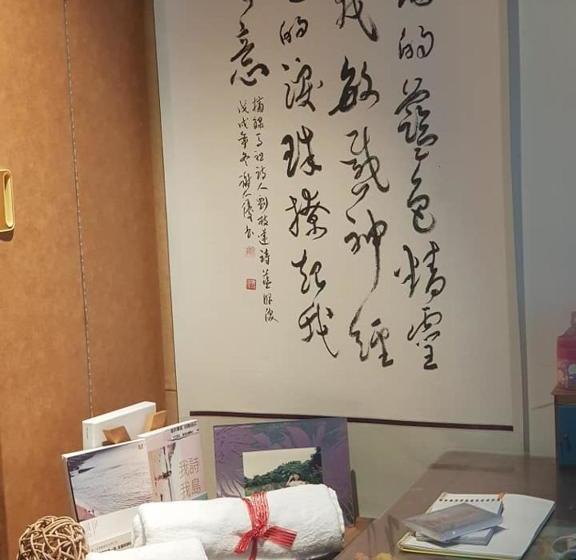 的藍色精靈
我敏感神經
的淚珠撩起我
意
摘錄馬祖詩人劉枝蓮詩藍眼淚
戊戌年冬
我詩
我島